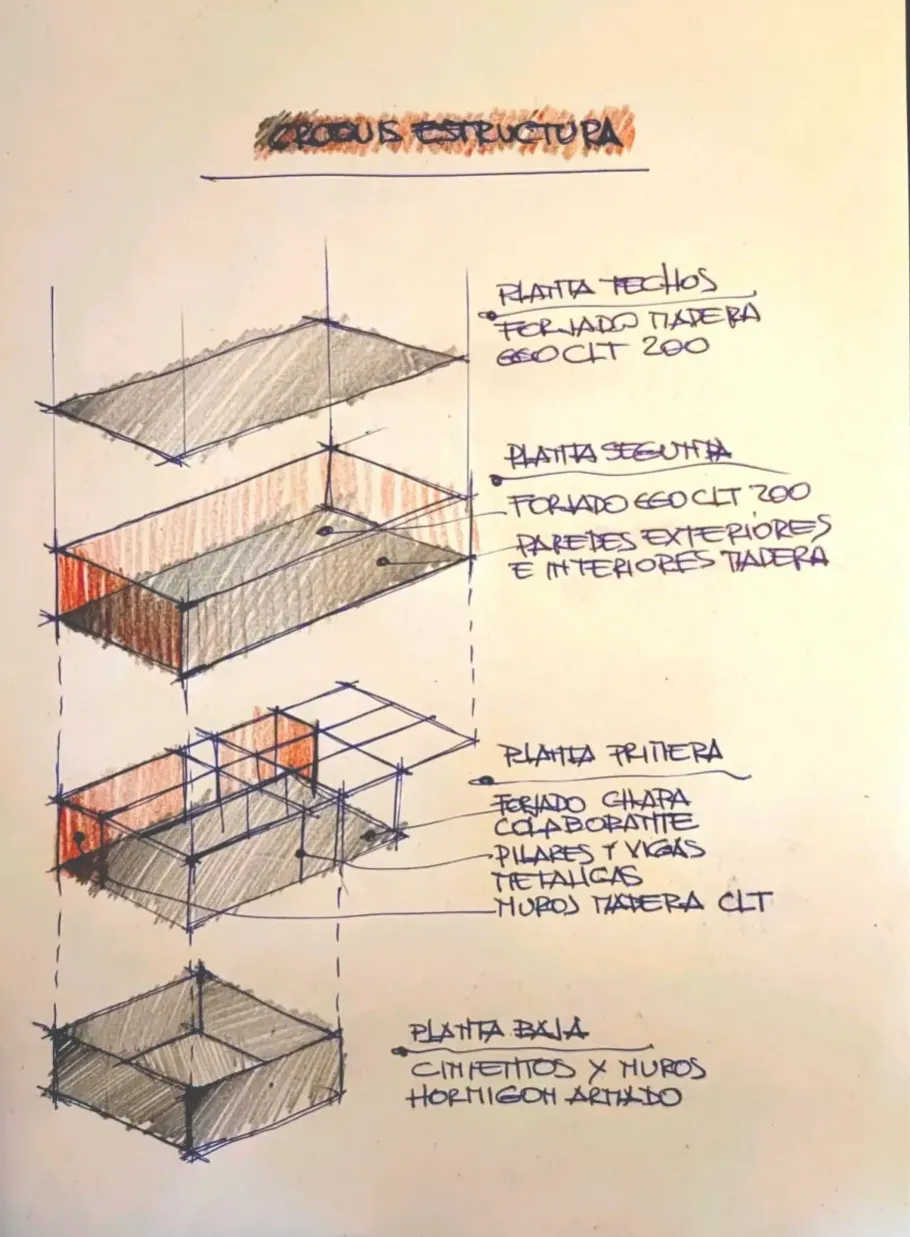 CROQUIS ESTRUCTURA
PLANTA TECHOS
FORJADO MADERA
EGO CLT 200
PLANTA SEGUNDA
FORJADO EGO CLT 200
PAREDES EXTERIORES
E INTERIORES MADERA
PLANTA PRIMERA
FORJADO CHAPA
COLABORANTE
PILARES Y VIGAS
METALICAS
MUROS MADERA CLT
PLANTA BAJA
CIMIENTOS Y MUROS
HORMIGON ARMADO